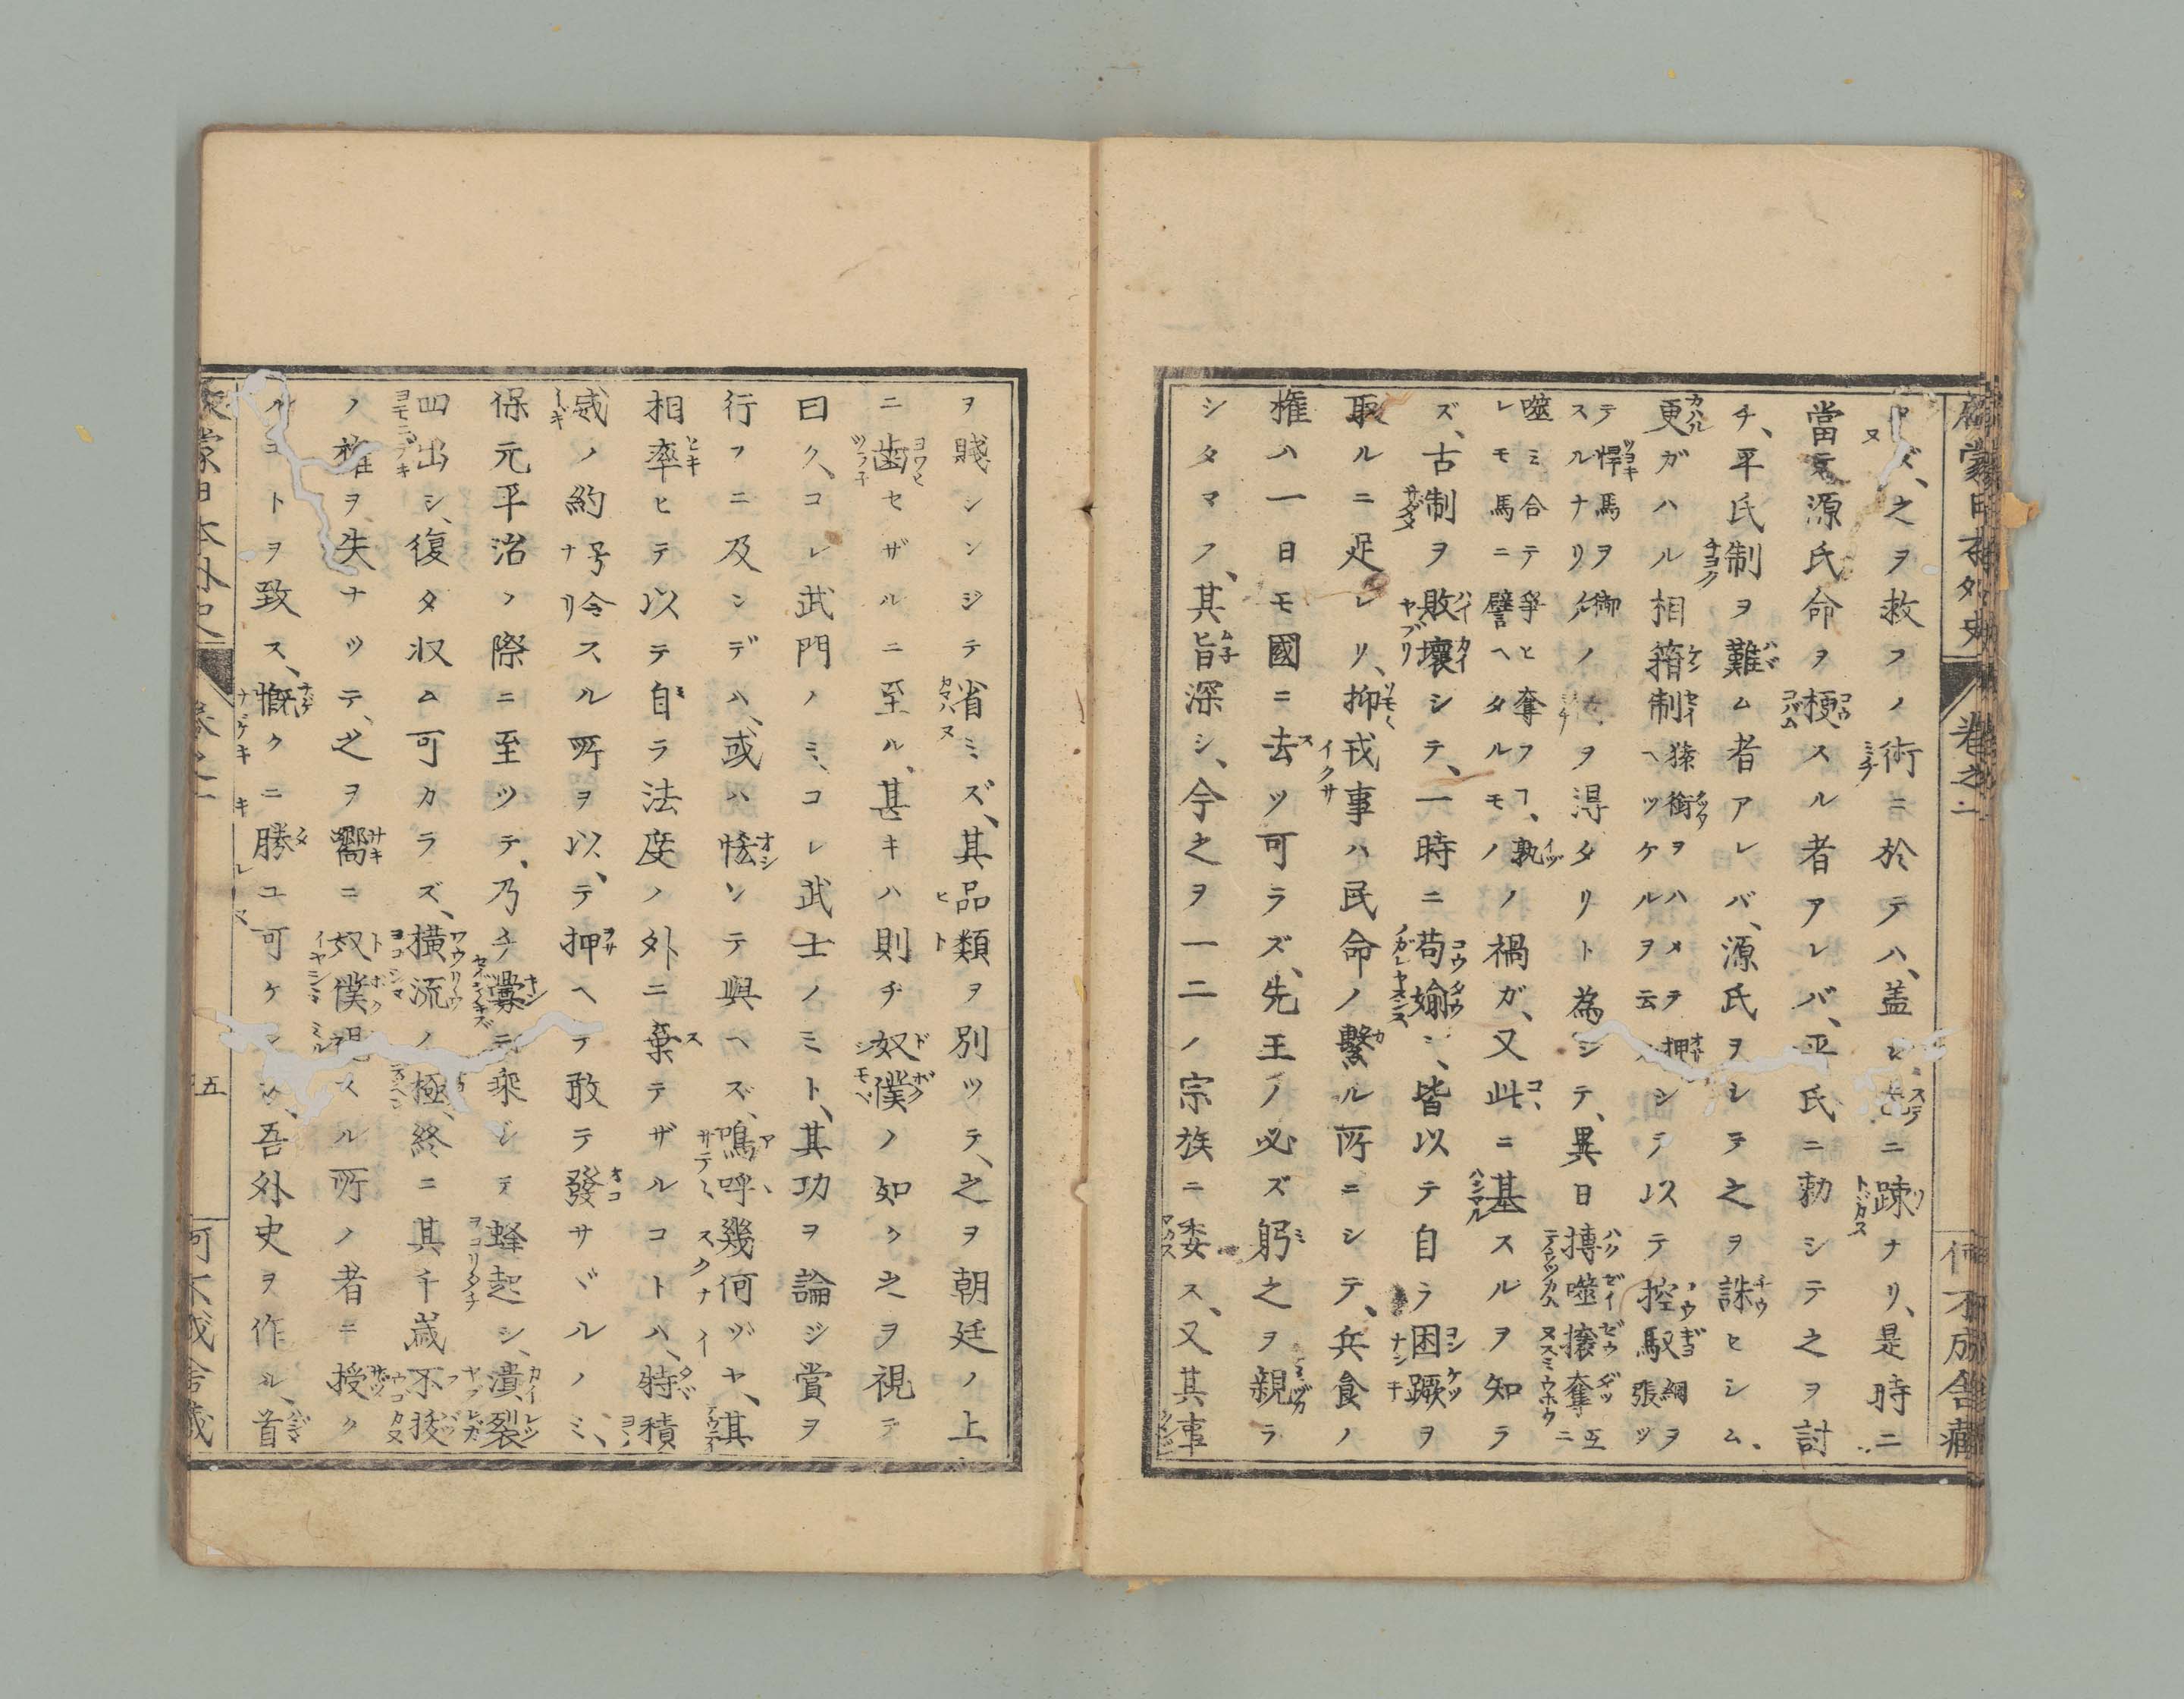 啓蒙日本外史 卷之二 何不成舎藏
ズ、之ヲ救フノ術ニ於テハ、蓋シ ニ踈ナリ、是時ニ
當テ源氏命ヲ梗スル者アレバ、平氏ニ勅シテ之ヲ討
チ、平氏制ヲ難ム者アレバ、源氏ヲシテ之ヲ誅セシム、
更ガハル相箝制 猿銜ヲハメテ押ヘツケルヲ云 シテ以テ控馭 綱ヲ張ツ
テ悍馬ヲ御スルナリ スルノ ヲ得タリト為シテ、異日摶噬攘奪 互ニ
噬ミ合テ爭ヒ奪フヿ、孰レモ馬ニ譬ヘタルモノ ノ禍ガ、又此ニ基スルヲ知ラ
ズ、古制ヲ敗壞シテ、一時ニ苟媮シ、皆以テ自ラ困蹶ヲ
取ルニ足レリ、抑戎事ハ民命ノ繫ル所ニシテ、兵食ノ
権ハ一日モ國ニ去ツ可ラズ、先王ノ必ズ躬之ヲ親ラ
シタマフ、其旨深シ、今之ヲ一二ノ宗族ニ委ス、又其事
ヲ賤シンジテ省ミズ、其品類ヲ別ツテ、之ヲ朝廷ノ上
ニ齒セザルニ至ル、甚キハ則チ奴僕ノ如ク之ヲ視テ
曰ク、コレ武門ノミ、コレ武士ノミト、其功ヲ論ジ賞ヲ
行フニ及ンデハ、或ハ恡ンテ與ヘズ、鳴呼幾何ゾヤ、其
相率ヒテ以テ自ラ法度ノ外ニ棄テザルコトハ、特積
威ノ約号令スル所ヲ以、テ押ヘテ敢テ發サヾルノミ、
保元平治ノ際ニ至ツテ、乃チ釁ニ乘シテ蜂起シ、潰裂
四出シ、復タ収ム可カラズ、橫流ノ極、終ニ其千歳不拔
ノ權ヲ失ナツテ、之ヲ嚮ニ奴僕視スル所ノ者ニ授ク
ルコトヲ致ス、慨クニ勝ユ可ケンヤ、吾外史ヲ作ル、首
啓蒙日本外史 卷之二 五 何不成舎藏